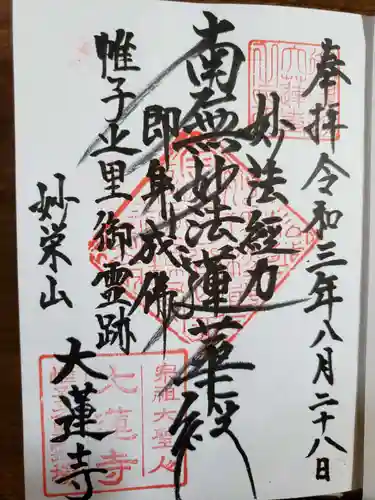 奉拝 令和三年八月二十八日
妙法経力
南無妙法蓮華経
即身成佛
帷子之里御霊跡
妙栄山
大蓮寺
宗祖大聖人
大蓮寺